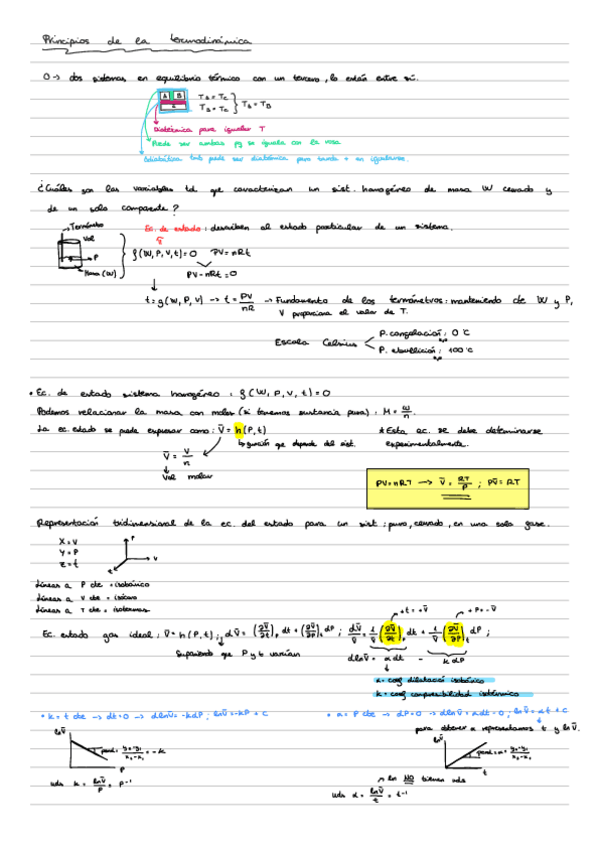 Principios de la termodinámica
0 → dos sistemas en equilibrio térmico con un tercero, lo están entre sí.
A B
TA = TC
TB = TC
TA = TB
Diatérmica para igualar T
Puede ser ambas pq se iguala con la rosa
¿Cuáles son las variables td. que caracterizan un sist. homogéneo de masa W cerrado y
de un solo componente?
Termómetro
Vol
P
Masa (W)
Ec. de estado: describen al estado particular de un sistema.
f(W, P, V, t) = 0 PV = nRt
PV - nRt = 0
t = g(W, P, V) → t = PV/nR → Fundamento de los termómetros: manteniendo cte W y P,
V proporciona el valor de T.
Escala Celsius
P. congelación: 0°C
P. ebullición: 100°C
• Ec. de estado sistema homogéneo: f(W, P, V, t) = 0
Podemos relacionar la masa con moles (si tenemos sustancia pura): M = W/n.
La ec. estado se puede expresar como: V̄ = h(P, t)
función que depende del sist.
* Esta ec. se debe determinarse
experimentalmente.
V̄ = V/n
Vol molar
PV = nRT → V̄ = RT/P ; PV̄ = RT
Representación tridimensional de la ec. del estado para un sist: puro, cerrado, en una sola fase.
X = V
Y = P
Z = t
P
V
t
Líneas a P cte = isobárico
Líneas a V cte = isócoro
Líneas a T cte = isotermas
Ec. estado gas ideal: V̄ = h(P, t); dV̄ = (∂V̄/∂t)P dt + (∂V̄/∂P)t dP; dV̄/V̄ = 1/V̄ (∂V̄/∂t)P dt + 1/V̄ (∂V̄/∂P)t dP;
+t = +V̄
+P = -V̄
Suponiendo que P y t varían
dlnV̄ = α dt - k dP
α = coef dilatació isobárico
k = coef compresibilidad isotérmico
• k = t cte → dt = 0 → dlnV̄ = -kdP; lnV̄ = -kP + C
• α = P cte → dP = 0 → dlnV̄ = αdt - 0; lnV̄ = αt + C
para obtener α representamos t y lnV̄.
lnV̄
pend = y₂-y₁/x₂-x₁ = -k
P
uds k = lnV̄/P = P⁻¹
lnV̄
pend = α = y₂-y₁/x₂-x₁
t
ln NO tienen uds
uds α = lnV̄/t = t⁻¹